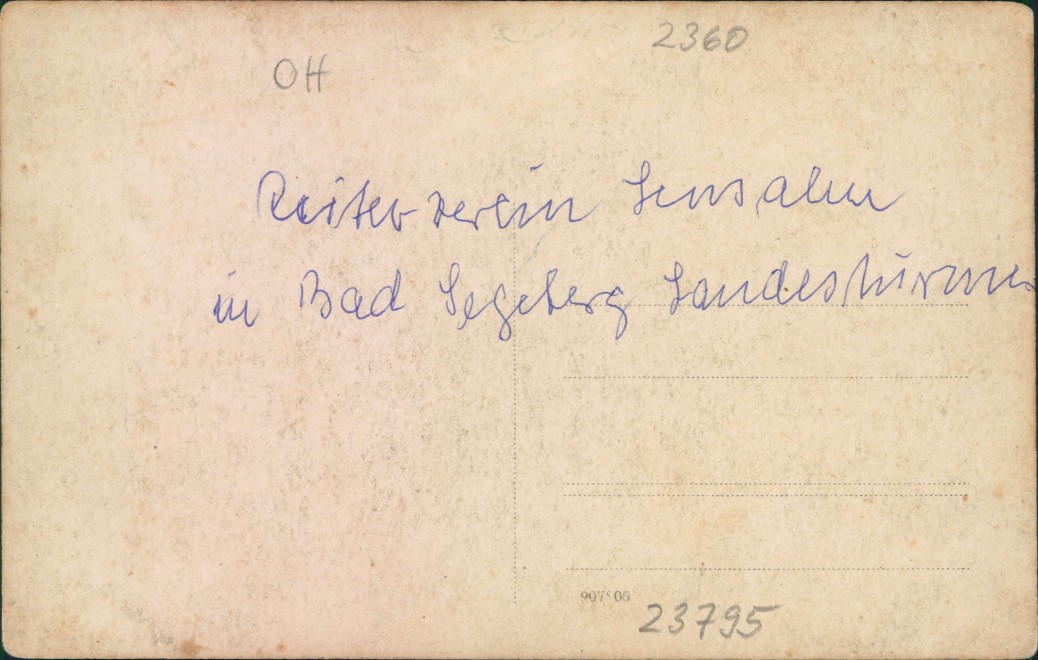 2360
OH
Reiterverein Lensahn
in Bad Segeberg Landesturnier
23795